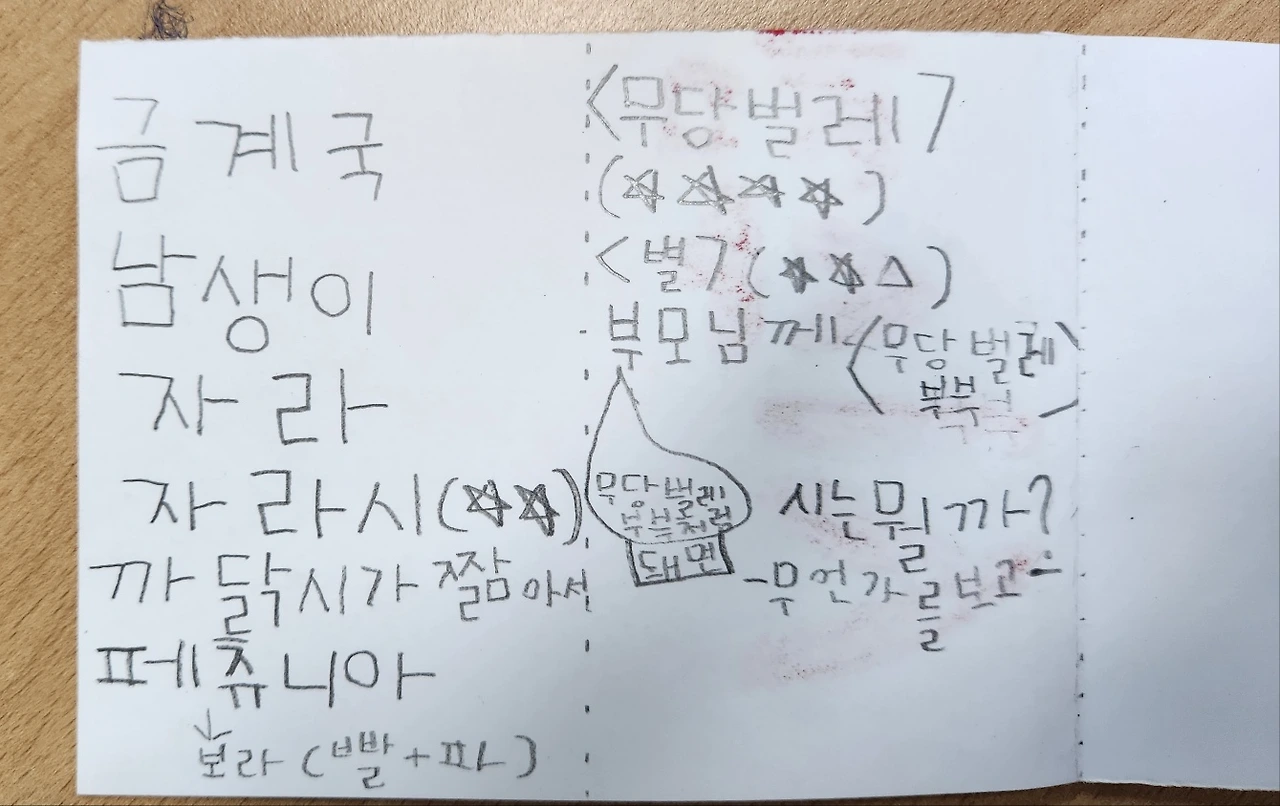 금계국
남생이
자라
자라시(☆☆)
까닭시가 짧아서
페츄니아
↓
보라 (빨+파)
<무당벌레>
(☆☆☆☆)
<별>(☆☆△)
부모님께
<무당벌레
부부>
무당벌레
부부처럼
돼면
시는뭘까?
-무언가를보고-